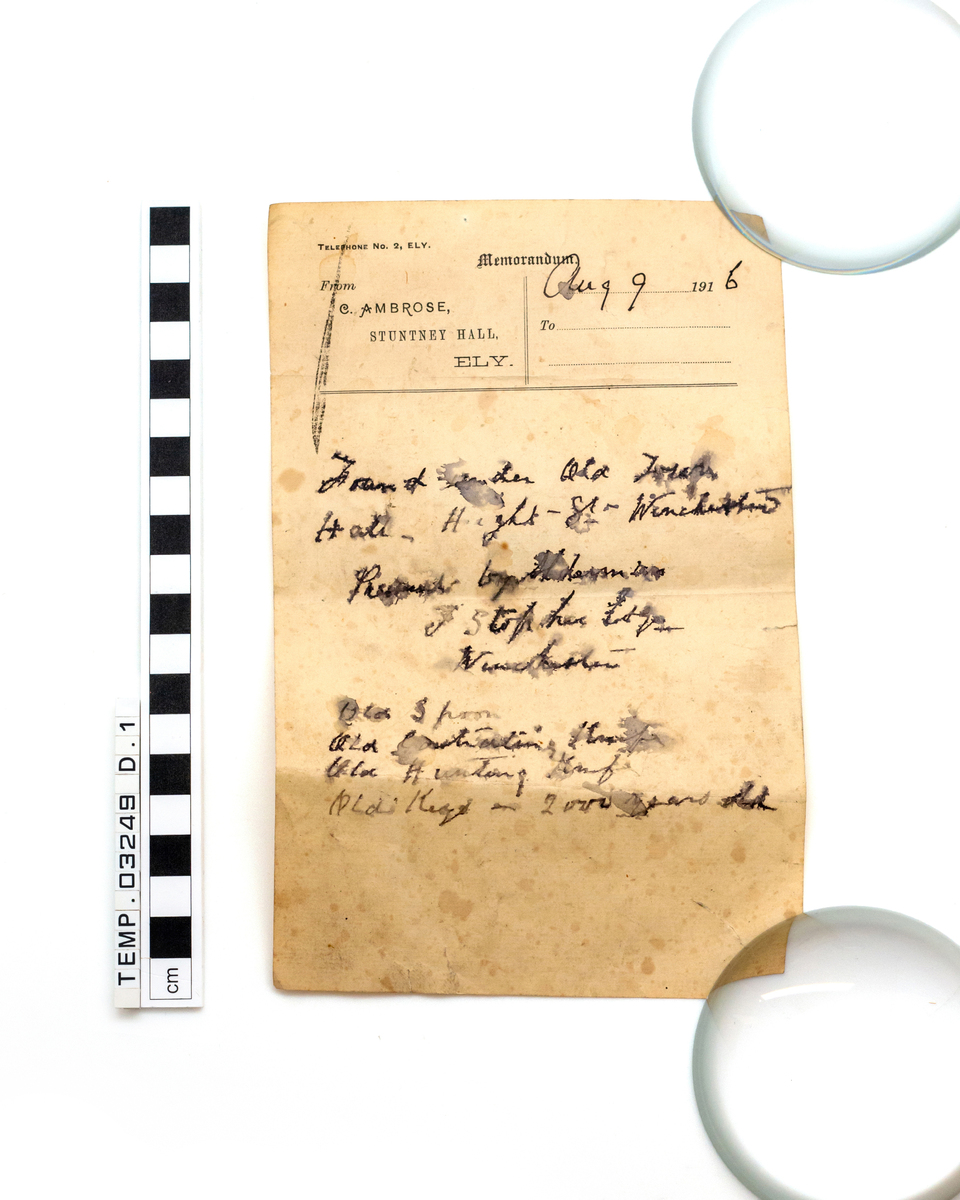 TELEPHONE No. 2, ELY.
Memorandum
From
Aug 9 1916
C. AMBROSE,
To
STUNTNEY HALL,
ELY.
Found under Old
Hall - Hight - St - Winchester
by Alderman
Winchester
Old Spoon
Old Knife
Old Hunting Knife
Old Keys - 2000 years old
TEMP.03249 D.1
cm